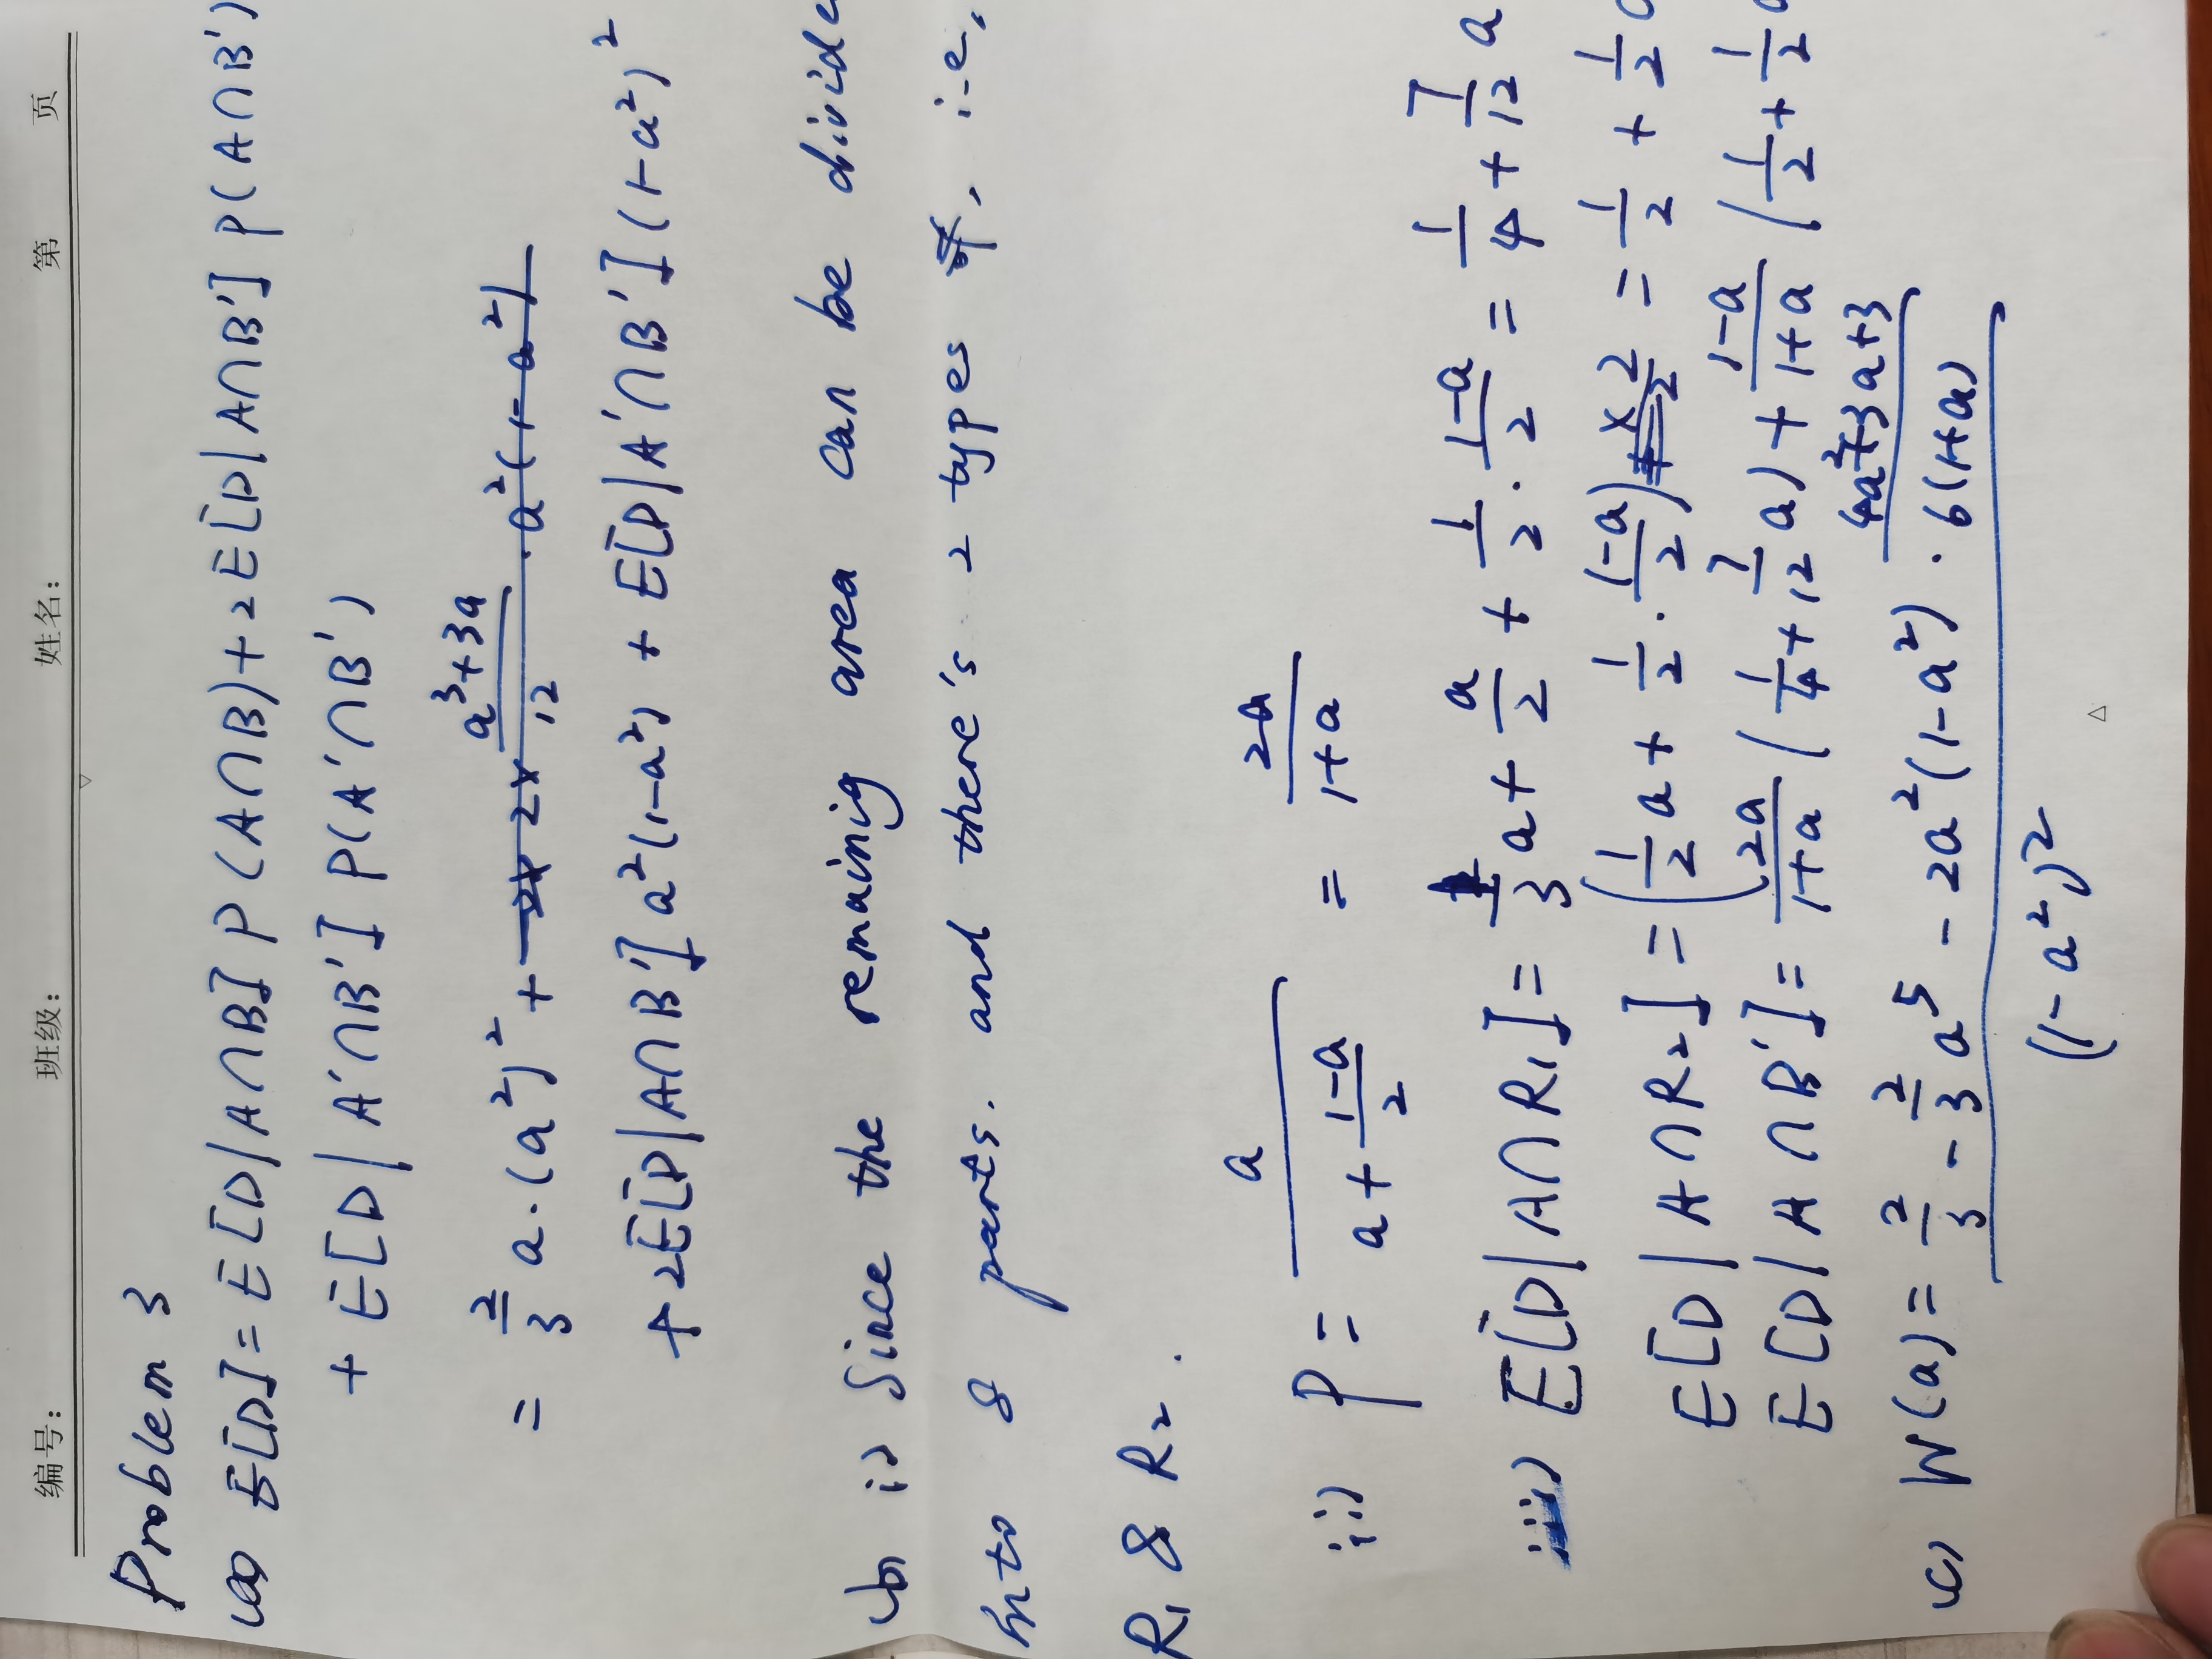 编号: 班级: 姓名: 第 页
Problem 3
(a) E[D] = E[D|A∩B] P(A∩B) + 2E[D|A∩B'] P(A∩B')
+ E[D|A'∩B'] P(A'∩B')
= 2/3 a·(a²)² + 2× (a³+3a)/12 · a²(1-a²)
+ 2E[D|A∩B'] a²(1-a²) + E[D|A'∩B'] (1-a²)²
(b) i) Since the remainig area can be divide
into 8 parts. and there's 2 types , i.e,
R₁ & R₂ .
ii) P = a/(a + (1-a)/2) = 2a/(1+a)
iii) E[D|A∩R₁] = 1/3 a + a/2 + 1/2 · (1-a)/2 = 1/4 + 7/12 a
E[D|A∩R₂] = (1/2 a + 1/2 · (1-a)/2) × 2 = 1/2 + 1/2 a
E[D|A∩B'] = 2a/(1+a) (1/4 + 7/12 a) + (1-a)/(1+a) (1/2 + 1/2
(c) W(a) = (2/3 - 2/3 a⁵ - 2a²(1-a²) · (4a²+3a+3)/(6(1+a)))/(1-a²)²